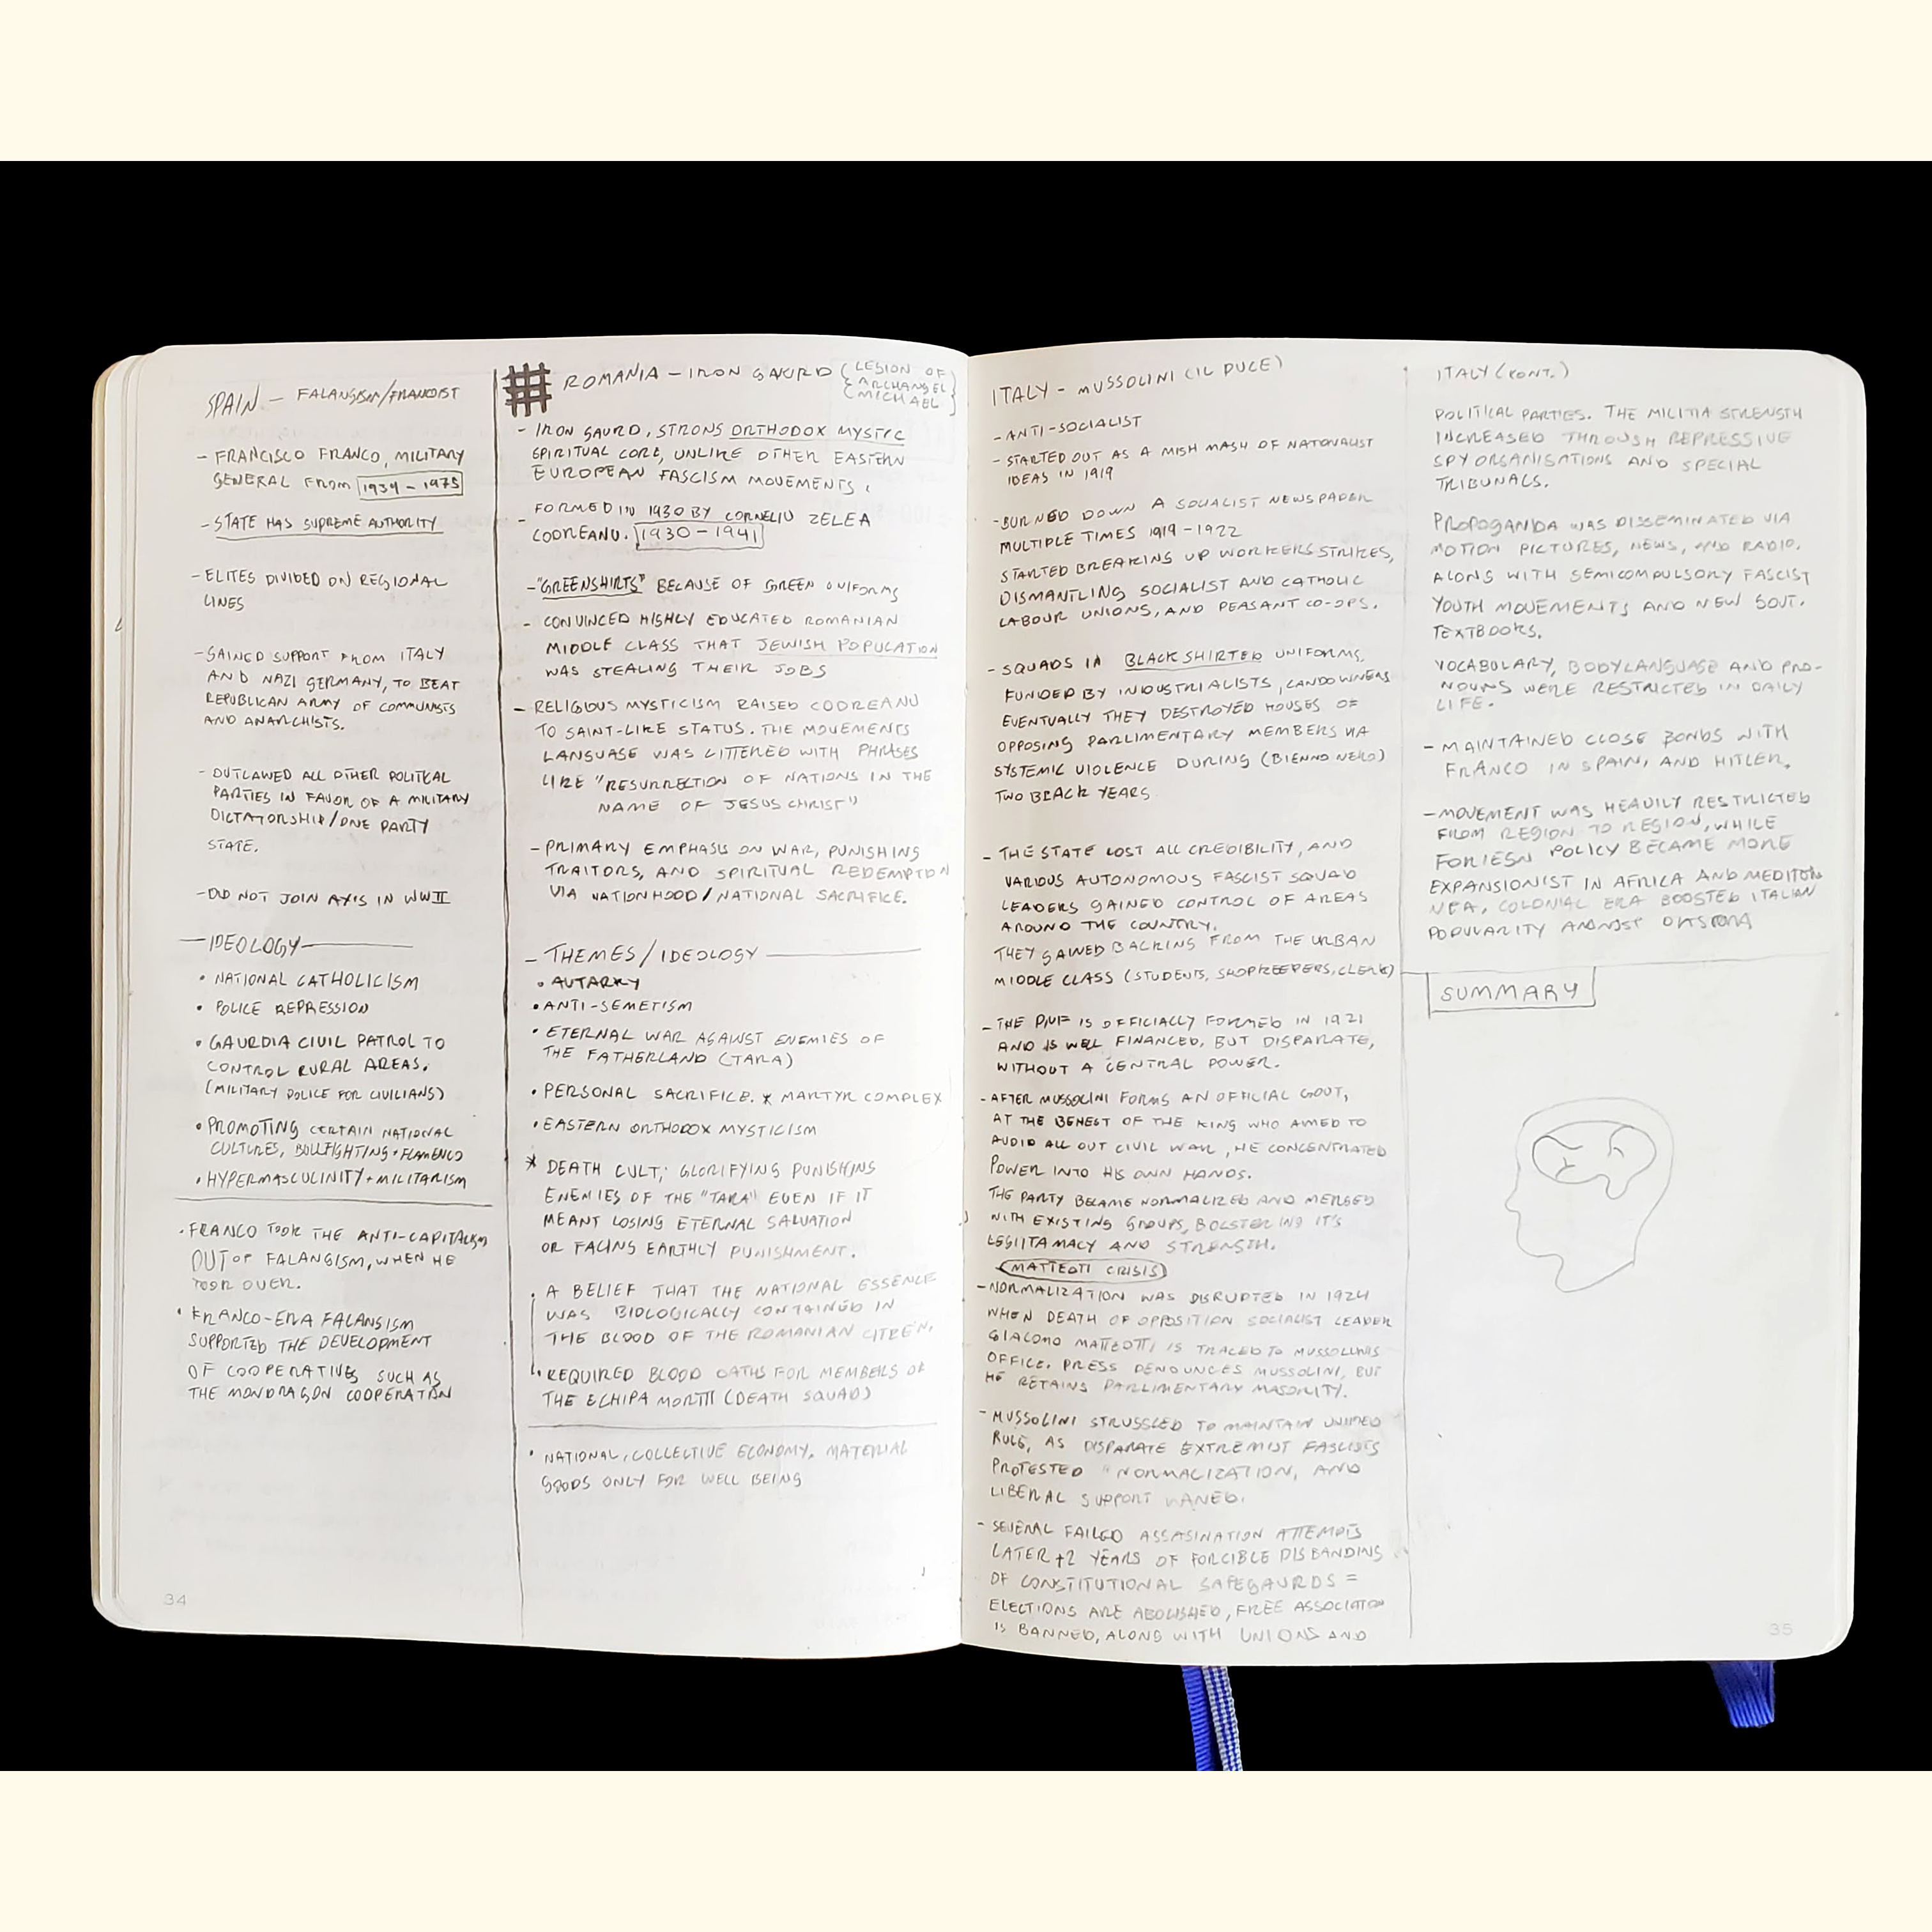 SPAIN – FALANGISM/FRANCOIST
– FRANCISCO FRANCO, MILITARY
GENERAL FROM 1939 – 1975
– STATE HAS SUPREME AUTHORITY
– ELITES DIVIDED ON REGIONAL
LINES
– GAINED SUPPORT FROM ITALY
AND NAZI GERMANY, TO BEAT
REPUBLICAN ARMY OF COMMUNISTS
AND ANARCHISTS.
– OUTLAWED ALL OTHER POLITICAL
PARTIES IN FAVOR OF A MILITARY
DICTATORSHIP/ONE PARTY
STATE.
– DID NOT JOIN AXIS IN WWII
– IDEOLOGY –
• NATIONAL CATHOLICISM
• POLICE REPRESSION
• GAURDIA CIVIL PATROL TO
CONTROL RURAL AREAS.
(MILITARY POLICE FOR CIVILIANS)
• PROMOTING CERTAIN NATIONAL
CULTURES, BULLFIGHTING + FLAMENCO
• HYPERMASCULINITY + MILITARISM
• FRANCO TOOK THE ANTI-CAPITALISM
OUT OF FALANGISM, WHEN HE
TOOK OVER.
• FRANCO-ERA FALANGISM
SUPPORTED THE DEVELOPMENT
OF COOPERATIVES SUCH AS
THE MONDRAGON COOPERATION
34
ROMANIA – IRON GAURD (LEGION OF
ARCHANGEL
MICHAEL)
– IRON GAURD, STRONG ORTHODOX MYSTIC
SPIRITUAL CORE, UNLIKE OTHER EASTERN
EUROPEAN FASCISM MOVEMENTS.
– FORMED IN 1930 BY CORNELIU ZELEA
CODREANU. 1930 – 1941
– "GREENSHIRTS" BECAUSE OF GREEN UNIFORMS
– CONVINCED HIGHLY EDUCATED ROMANIAN
MIDDLE CLASS THAT JEWISH POPULATION
WAS STEALING THEIR JOBS
– RELIGIOUS MYSTICISM RAISED CODREANU
TO SAINT-LIKE STATUS. THE MOVEMENTS
LANGUAGE WAS LITTERED WITH PHRASES
LIKE "RESURRECTION OF NATIONS IN THE
NAME OF JESUS CHRIST"
– PRIMARY EMPHASIS ON WAR, PUNISHING
TRAITORS, AND SPIRITUAL REDEMPTION
VIA NATIONHOOD/NATIONAL SACRIFICE.
– THEMES/IDEOLOGY –
• AUTARKY
• ANTI-SEMETISM
• ETERNAL WAR AGAINST ENEMIES OF
THE FATHERLAND (TARA)
• PERSONAL SACRIFICE. * MARTYR COMPLEX
• EASTERN ORTHODOX MYSTICISM
* DEATH CULT; GLORIFYING PUNISHING
ENEMIES OF THE "TARA" EVEN IF IT
MEANT LOSING ETERNAL SALVATION
OR FACING EARTHLY PUNISHMENT.
• A BELIEF THAT THE NATIONAL ESSENCE
WAS BIOLOGICALLY CONTAINED IN
THE BLOOD OF THE ROMANIAN CITIZEN.
• REQUIRED BLOOD OATHS FOR MEMBERS OF
THE ECHIPA MORTII (DEATH SQUAD)
• NATIONAL, COLLECTIVE ECONOMY. MATERIAL
GOODS ONLY FOR WELL BEING
ITALY – MUSSOLINI (IL DUCE)
– ANTI-SOCIALIST
– STARTED OUT AS A MISH MASH OF NATIONALIST
IDEAS IN 1919
– BURNED DOWN A SOCIALIST NEWSPAPER
MULTIPLE TIMES 1919 – 1922
STARTED BREAKING UP WORKERS STRIKES,
DISMANTLING SOCIALIST AND CATHOLIC
LABOUR UNIONS, AND PEASANT CO-OPS.
– SQUADS IN BLACKSHIRTED UNIFORMS,
FUNDED BY INDUSTRIALISTS, LANDOWNERS
EVENTUALLY THEY DESTROYED HOUSES OF
OPPOSING PARLIMENTARY MEMBERS VIA
SYSTEMIC VIOLENCE DURING (BIENNO NERO)
TWO BLACK YEARS
– THE STATE LOST ALL CREDIBILITY, AND
VARIOUS AUTONOMOUS FASCIST SQUAD
LEADERS GAINED CONTROL OF AREAS
AROUND THE COUNTRY.
THEY GAINED BACKING FROM THE URBAN
MIDDLE CLASS (STUDENTS, SHOPKEEPERS, CLERK)
– THE PNF IS OFFICIALLY FORMED IN 1921
AND IS WELL FINANCED, BUT DISPARATE,
WITHOUT A CENTRAL POWER.
– AFTER MUSSOLINI FORMS AN OFFICIAL GOVT,
AT THE BEHEST OF THE KING WHO AIMED TO
AVOID ALL OUT CIVIL WAR, HE CONCENTRATED
POWER INTO HIS OWN HANDS.
THE PARTY BECAME NORMALIZED AND MERGED
WITH EXISTING GROUPS, BOLSTERING IT'S
LEGIITAMACY AND STRENGTH.
MATTEOTI CRISIS
– NORMALIZATION WAS DISRUPTED IN 1924
WHEN DEATH OF OPPOSITION SOCIALIST LEADER
GIACOMO MATTEOTTI IS TRACED TO MUSSOLINIS
OFFICE. PRESS DENOUNCES MUSSOLINI, BUT
HE RETAINS PARLIMENTARY MAJORITY.
– MUSSOLINI STRUGGLED TO MAINTAIN UNIFIED
RULE, AS DISPARATE EXTREMIST FASCISTS
PROTESTED "NORMALIZATION, AND
LIBERAL SUPPORT WANED.
– SEVERAL FAILED ASSASINATION ATTEMPTS
LATER +2 YEARS OF FORCIBLE DISBANDING
OF CONSTITUTIONAL SAFEGAURDS =
ELECTIONS ARE ABOLISHED, FREE ASSOCIATION
IS BANNED, ALONG WITH UNIONS AND
ITALY (CONT.)
POLITICAL PARTIES. THE MILITIA STRENGTH
INCREASED THROUGH REPRESSIVE
SPY ORGANISATIONS AND SPECIAL
TRIBUNALS.
PROPOGANDA WAS DISSEMINATED VIA
MOTION PICTURES, NEWS, AND RADIO.
ALONG WITH SEMICOMPULSORY FASCIST
YOUTH MOVEMENTS AND NEW GOVT.
TEXTBOOKS.
VOCABULARY, BODYLANGUAGE AND PRO-
NOUNS WERE RESTRICTED IN DAILY
LIFE.
– MAINTAINED CLOSE BONDS WITH
FRANCO IN SPAIN, AND HITLER.
– MOVEMENT WAS HEAVILY RESTRICTED
FROM REGION TO REGION, WHILE
FORIEGN POLICY BECAME MORE
EXPANSIONIST IN AFRICA AND
COLONIAL ERA BOOSTED ITALIAN
POPULARITY AMONGST DIASPORA
SUMMARY
35